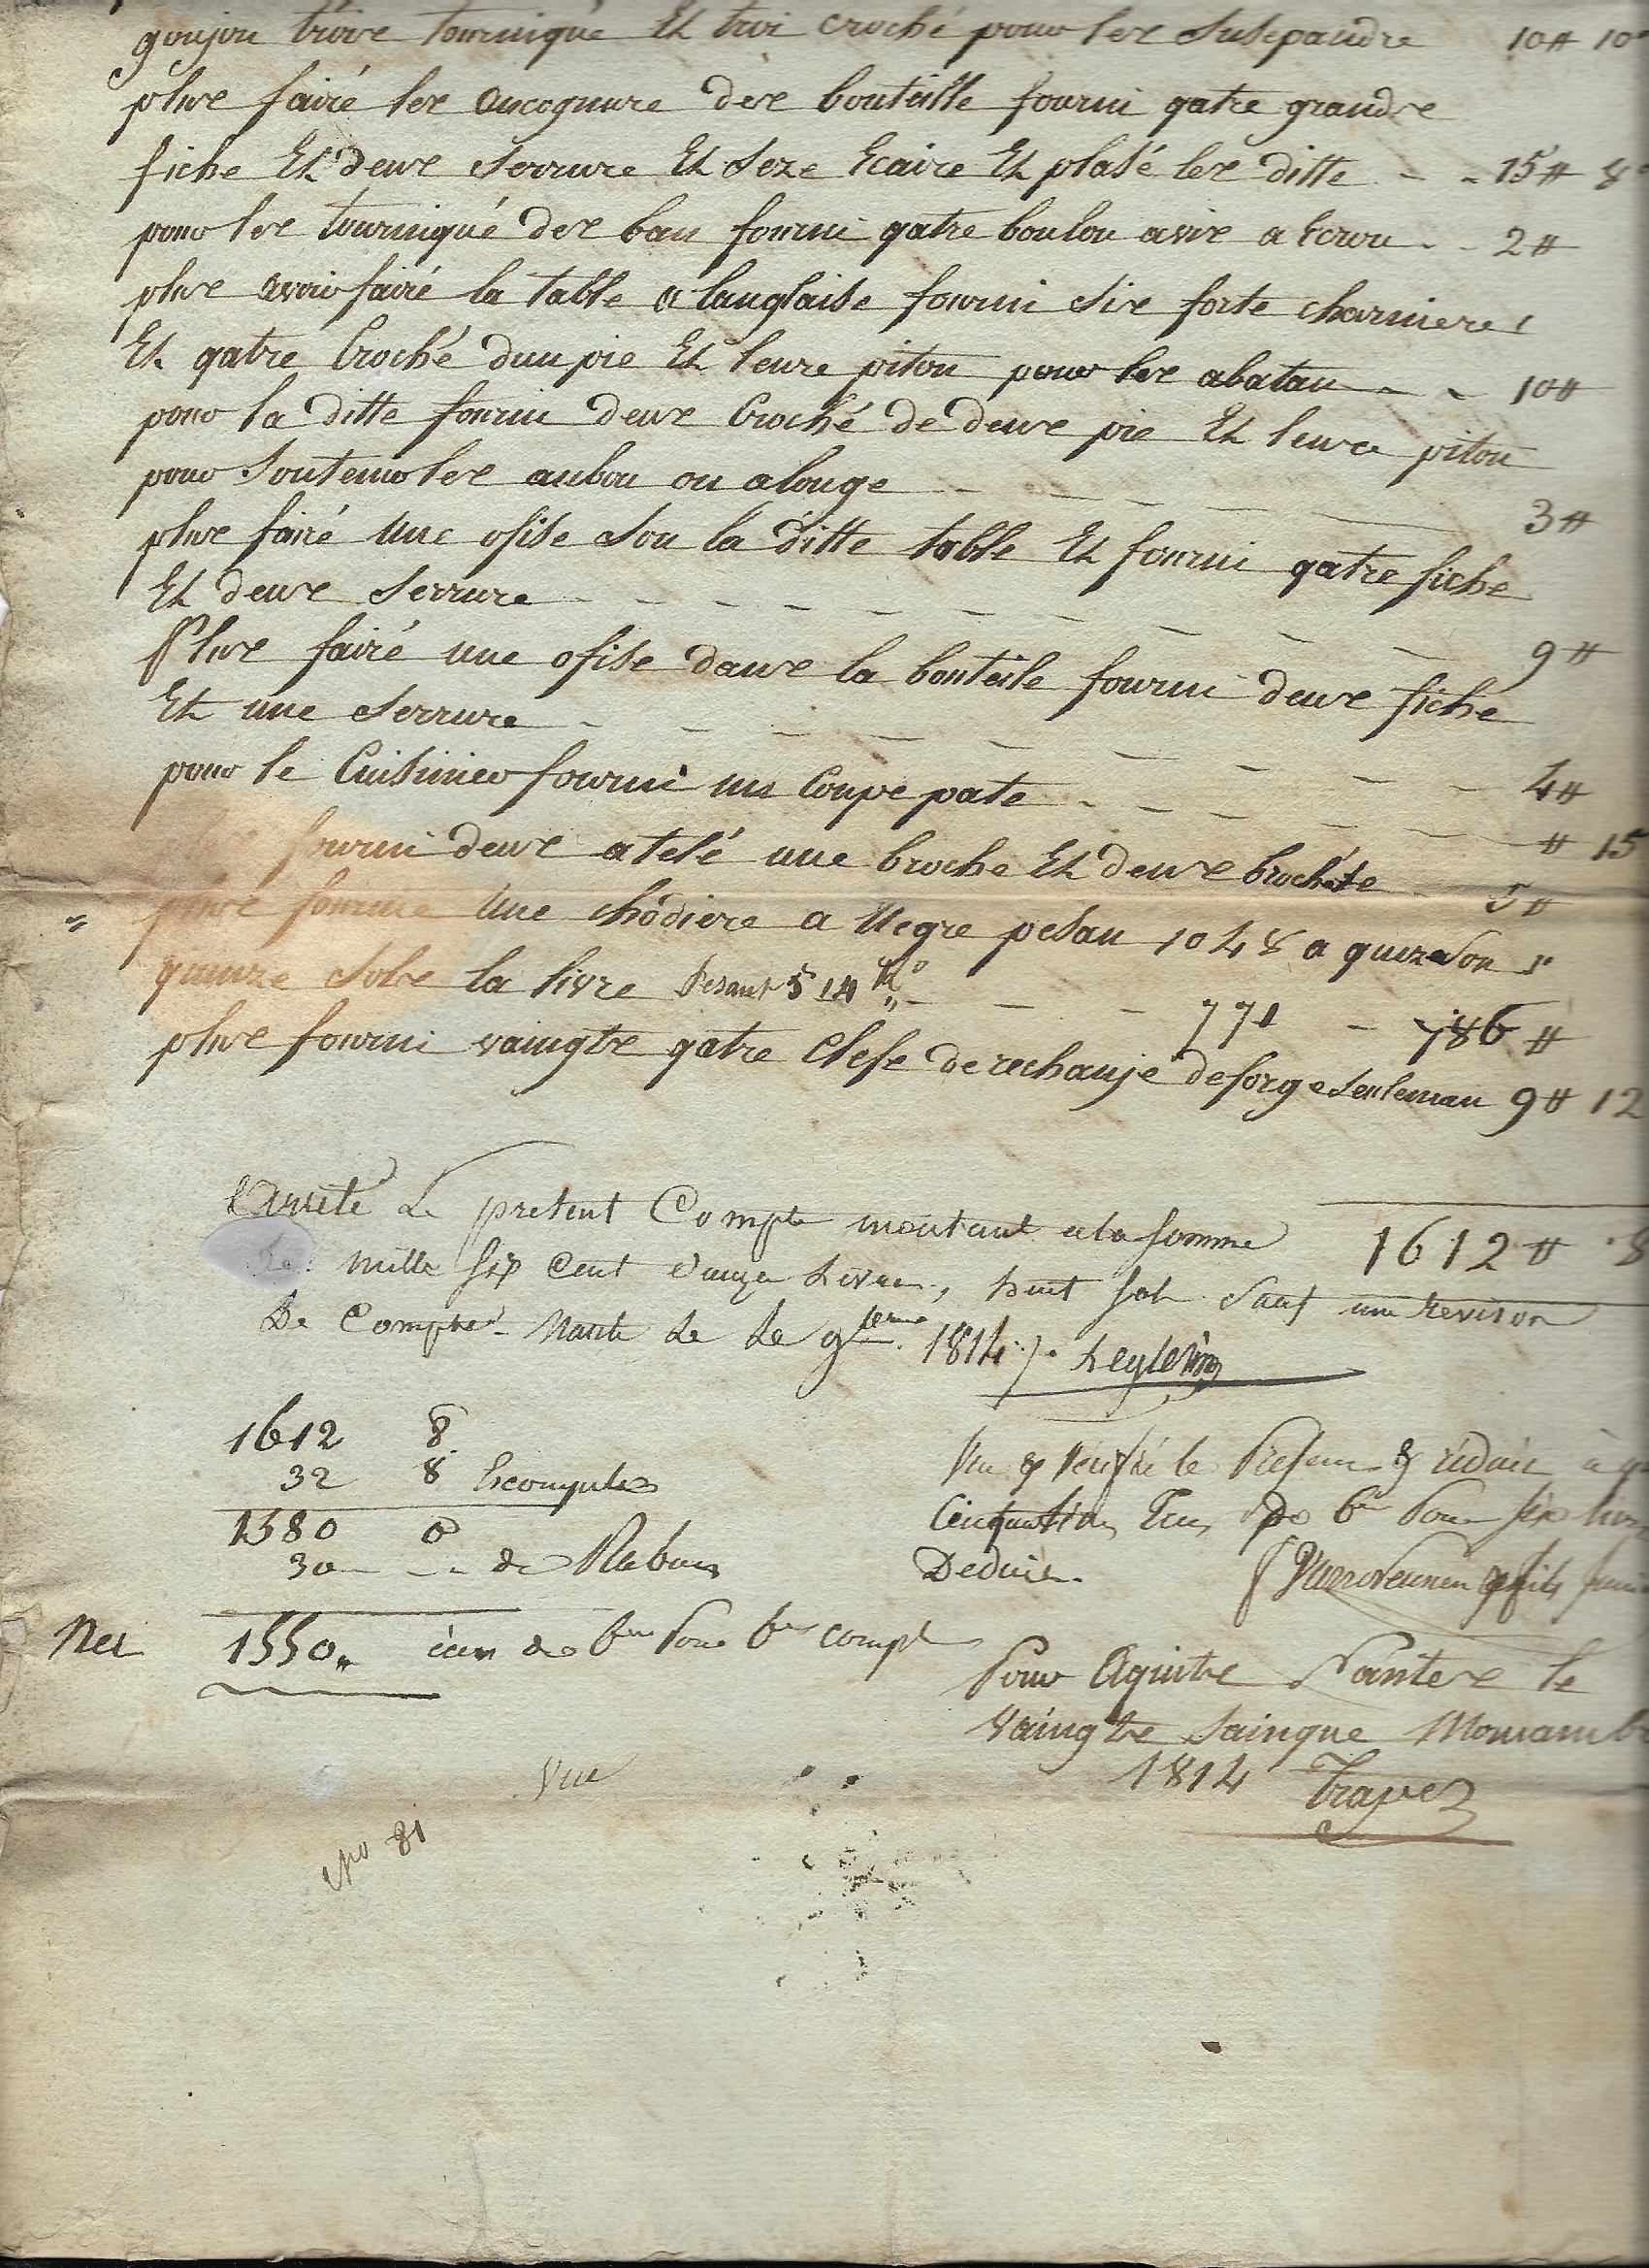 goujon troire tournique Et troi croché pour ler susepandre 10# 10
plure fairé ler ancognure der bouteille fourni qatre grandre
fiche Et deux serrure Et seze Ecaire Et plasé ler ditte - - 15# 8
pour ler tourniqué der ban fourni qatre boulon avire a Ecrou - - 2#
plure avoir fairé la table a langlaise fourni sire forte charniere
Et qatre Croché dun pie Et leure piton pour ler abatan - - 10#
pour la ditte fourni deux Croché de deux pie Et leure piton
pour soutenir ler aubou ou alonge - - - - 3#
plure fairé une ofise sou la ditte table Et fourni qatre fiche
Et deux serrure - - - - - - - - 9#
Plure fairé une ofise danre la bouteile fourni deux fiche
Et une serrure - - - - - - - 4#
pour le Cuisinier fourni un Coupe pate - - - - - # 15
fourni deux atelé une broche Et deux brochete 5#
plure fournie une chodiere a Negre pesan 1048 a quinze sou
quinze solre la livre Pesant 514 - - 771 - 786 #
plure fourni vaingtre qatre Clefe de rechanje de forge seuleman 9# 12
Arreté Le present Compte montant a la somme 1612# 8
de mille six Cent douze Livres, huit sols sauf une revision
De Compte - Nante Le 1814 /.
1612 8
32 8 Escompte
1580 0
30 - - de Rabais
Net 1550 " de pour compt
Vu & Vérifié le Present & réduit à
Cinquante pour six
Deduire.
Pour Aquitre Nantere le
Vaingtre sainque Novambre
1814 Trapez
Vue
No 81